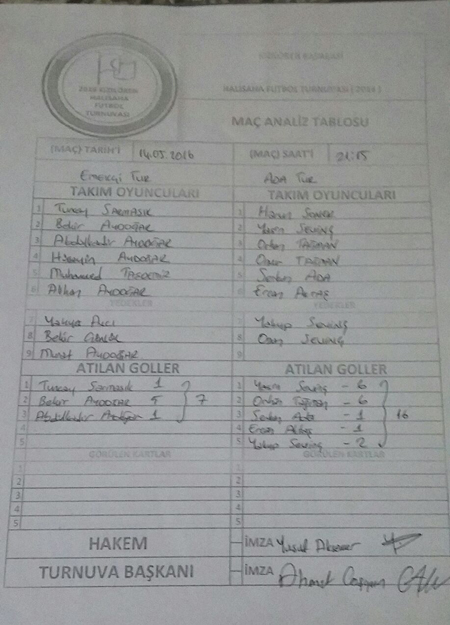 2016
HALISAHA
FUTBOL
TURNUVASI
HALISAHA FUTBOL TURNUVASI ( 2016 )
MAÇ ANALİZ TABLOSU
(MAÇ) TARİH'İ 14.05.2016 (MAÇ) SAAT'İ 21:15
Emekçi Tur Ada Tur
TAKIM OYUNCULARI TAKIM OYUNCULARI
1 Tuncay Sarmaşık 1 Harun Soner
2 Bekir AYDOĞAR 2 Yasin Sevinç
3 Abdulkadir AYDOĞAR 3 Orhan TAŞMAN
4 Hüseyin AYDOĞAR 4 Onur TAŞMAN
5 Muhammed 5 Serkan ADA
6 Alihan AYDOĞAR 6 Ercan
YEDEKLER YEDEKLER
7 Yahya Avcı 7 Yakup Sevinç
8 Bekir 8 Ozan Sevinç
9 Murat AYDOĞAR 9
ATILAN GOLLER ATILAN GOLLER
1 Tuncay Sarmaşık 1 1 Yasin Sevinç - 6
2 Bekir AYDOĞAR 5 7 2 Orhan Taşman - 6
3 Abdulkadir Aydoğar 1 3 Serkan Ada - 1 16
4 4 Ercan - 1
5 5 Yakup Sevinç - 2
GÖRÜLEN KARTLAR GÖRÜLEN KARTLAR
1 1
2 2
3 3
4 4
5 5
HAKEM İMZA Yusuf
TURNUVA BAŞKANI İMZA Ahmet